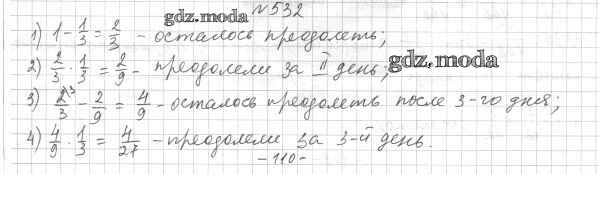 gdz.moda
№532
1) 1 - 1/3 = 2/3 - осталось преодолеть;
2) 2/3 · 1/3 = 2/9 - преодолели за II день; gdz.moda
3) 2/3 ³ - 2/9 = 4/9 - осталось преодолеть после 3-го дня;
4) 4/9 · 1/3 = 4/27 - преодолели за 3-й день.
- 110 -
gdz.moda